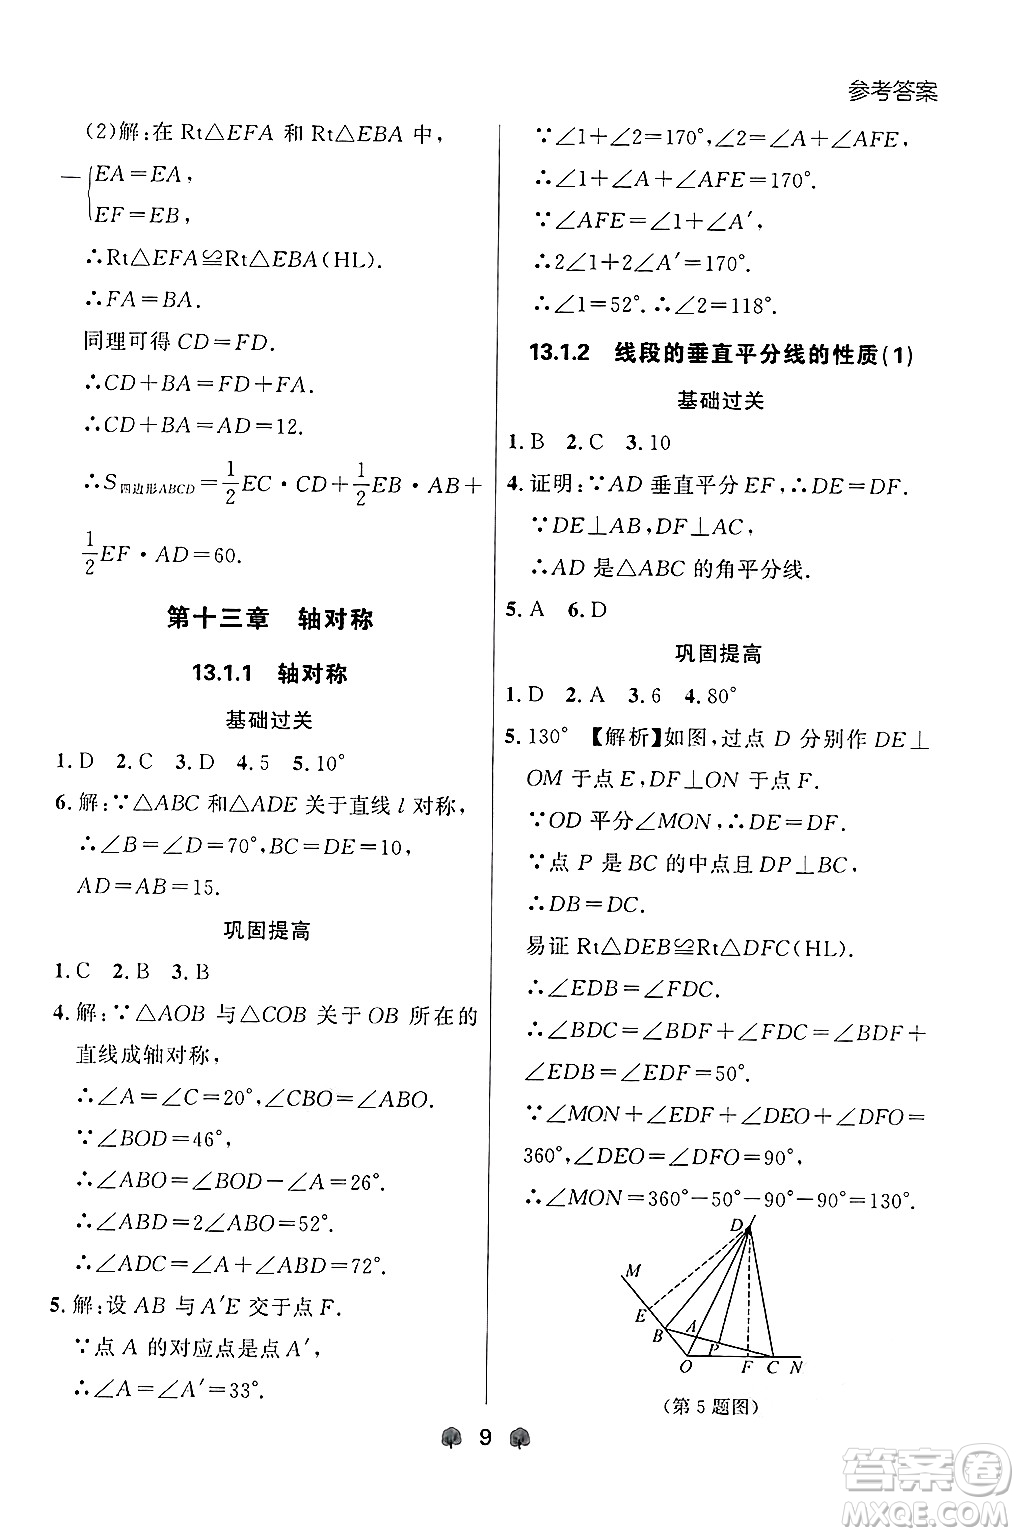 参考答案
(2)解:在 Rt△EFA 和 Rt△EBA 中,
{EA=EA,
EF=EB,
∴Rt△EFA≌Rt△EBA(HL).
∴FA=BA.
同理可得 CD=FD.
∴CD+BA=FD+FA.
∴CD+BA=AD=12.
∴S四边形ABCD=1/2EC·CD+1/2EB·AB+
1/2EF·AD=60.
第十三章 轴对称
13.1.1 轴对称
基础过关
1. D 2. C 3. D 4. 5 5. 10°
6. 解:∵△ABC 和△ADE 关于直线 l 对称,
∴∠B=∠D=70°,BC=DE=10,
AD=AB=15.
巩固提高
1. C 2. B 3. B
4. 解:∵△AOB 与△COB 关于 OB 所在的
直线成轴对称,
∴∠A=∠C=20°,∠CBO=∠ABO.
∵∠BOD=46°,
∴∠ABO=∠BOD-∠A=26°.
∴∠ABD=2∠ABO=52°.
∴∠ADC=∠A+∠ABD=72°.
5. 解:设 AB 与 A′E 交于点 F.
∵点 A 的对应点是点 A′,
∴∠A=∠A′=33°.
∵∠1+∠2=170°,∠2=∠A+∠AFE,
∴∠1+∠A+∠AFE=170°.
∵∠AFE=∠1+∠A′,
∴2∠1+2∠A′=170°.
∴∠1=52°.∴∠2=118°.
13.1.2 线段的垂直平分线的性质(1)
基础过关
1. B 2. C 3. 10
4. 证明:∵AD 垂直平分 EF,∴DE=DF.
∵DE⊥AB,DF⊥AC,
∴AD 是△ABC 的角平分线.
5. A 6. D
巩固提高
1. D 2. A 3. 6 4. 80°
5. 130° 【解析】如图,过点 D 分别作 DE⊥
OM 于点 E,DF⊥ON 于点 F.
∵OD 平分∠MON,∴DE=DF.
∵点 P 是 BC 的中点且 DP⊥BC,
∴DB=DC.
易证 Rt△DEB≌Rt△DFC(HL).
∴∠EDB=∠FDC.
∴∠BDC=∠BDF+∠FDC=∠BDF+
∠EDB=∠EDF=50°.
∵∠MON+∠EDF+∠DEO+∠DFO=
360°,∠DEO=∠DFO=90°,
∴∠MON=360°-50°-90°-90°=130°.
D
M
E
B A
P
O F C N
(第 5 题图)
9
答案圈
MXQE.COM